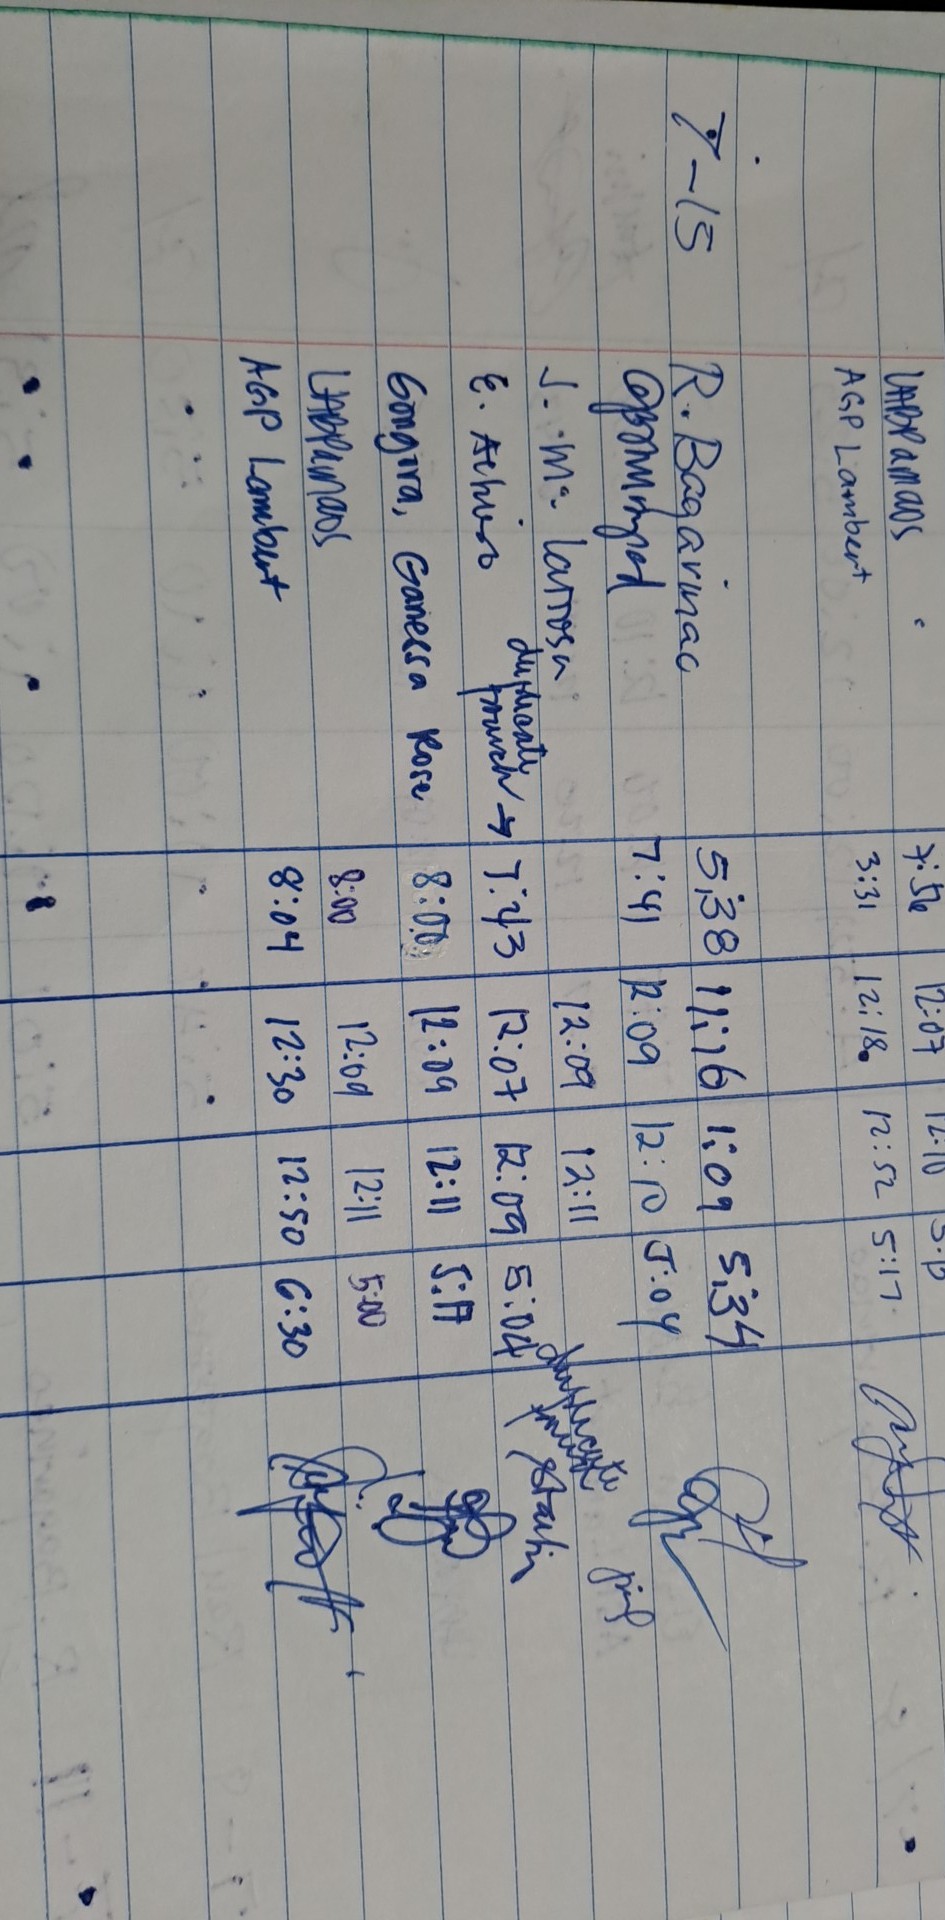 LABRAMAOS 7:56 12:07 12:10 5:10
AGP Lambert 3:31 12:18 12:52 5:17
7-15 R. Bagarinao 5:38 11:16 1:09 5:34
7:41 12:09 12:10 5:04
J. Ma. Larrosa 12:09 12:11
duplicate punch → duplicate punch
E. 7:43 12:07 12:09 5:04
Gongira, Ganessa Rose 8:00 12:09 12:11 5:17
LABRAMAOS 8:00 12:09 12:11 5:00
AGP Lambert 8:04 12:30 12:50 6:30